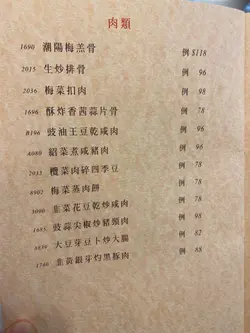 肉類
1690 潮陽梅羔骨 例 $118
2015 生炒排骨 例 96
2036 梅菜扣肉 例 96
1696 酥炸香茜蒜片骨 例 78
B196 豉油王豆乾咸肉 例 98
A080 紹菜煮咸豬肉 例 78
2033 欖菜肉碎四季豆 例 78
8902 梅菜蒸肉餅 例 78
3090 韭菜花豆乾炒咸肉 例 78
1685 豉蒜尖椒炒豬頸肉 例 98
大豆芽豆卜炒大腸 例 82
1740 韭黃銀芽灼黑豚肉 例 88